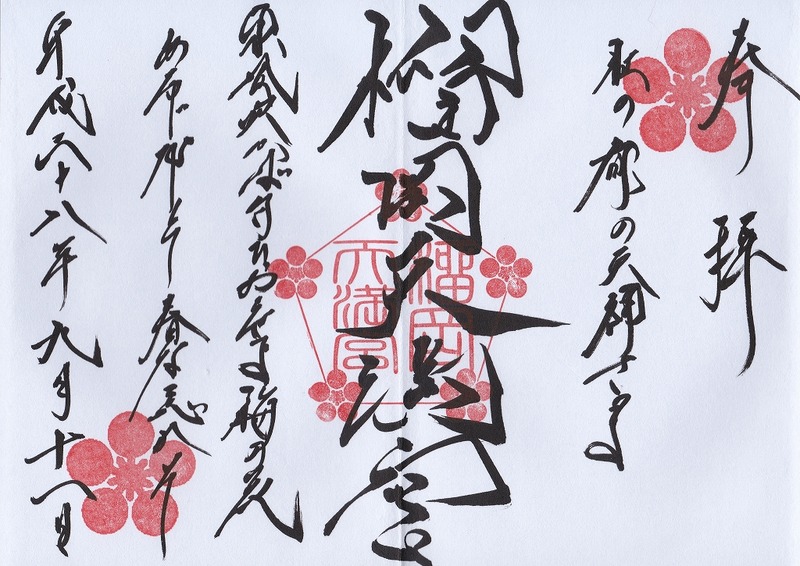 奉拝
杜の都の天神さま
榴岡天満宮
榴岡天満宮
東風吹かば匂ひおこせよ梅の花
あるじなしとて春な忘れそ
平成二十八年九月十八日